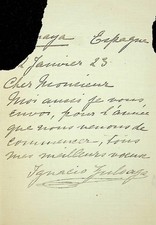 Espagne
Janvier 23
Cher Monsieur
Moi aussi je vous
envoi, pour l'année
que nous venons de
commencer, tous
mes meilleurs vœux
Ignacio Zuloaga